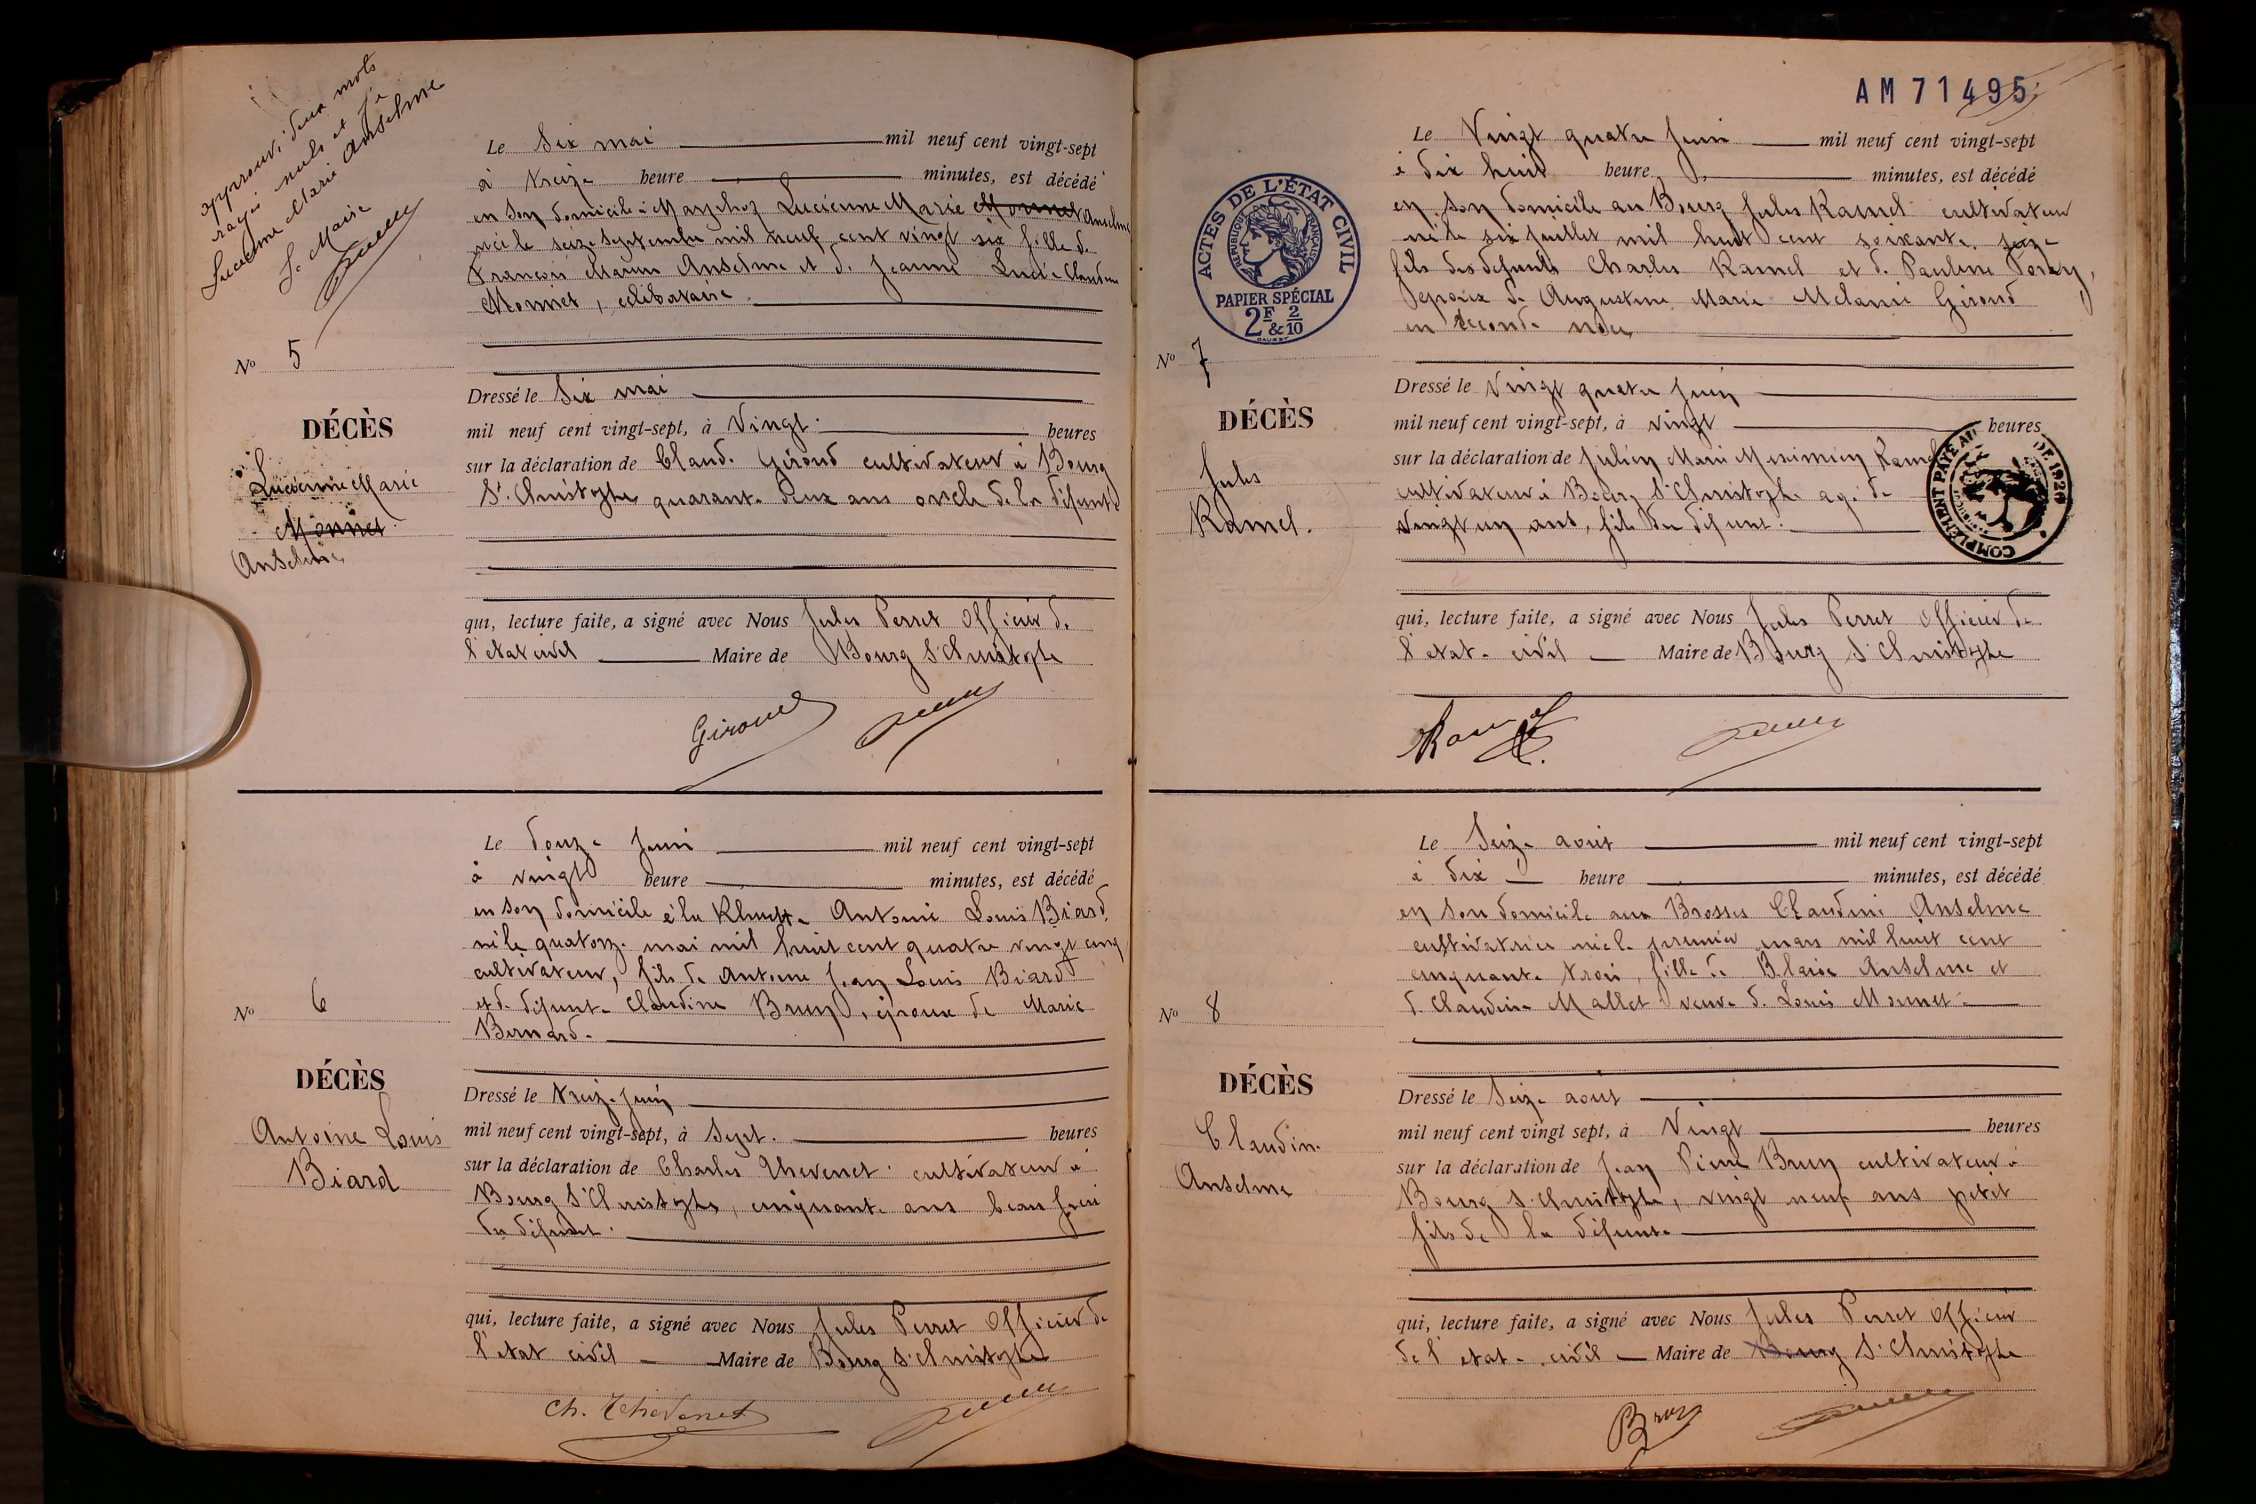 approuvé deux mots
rayés nuls et je
Lucienne Marie Anselme
Le Maire
Le Six mai mil neuf cent vingt-sept
à treize heure minutes, est décédé
en son domicile à Lucienne Marie Monnet Anselme
née le seize Septembre mil neuf cent vingt six fille de
François Anselme et de Jeanne Lucie Claudine
Monnet, célibataire
No 5
DÉCÈS
Lucienne Marie
Monnet
Anselme
Dressé le Six mai
mil neuf cent vingt-sept, à Vingt heures
sur la déclaration de Claude Giroud cultivateur à Bourg
St. Christophe quarante deux ans oncle de la défunte
qui, lecture faite, a signé avec Nous Jules Perret Officier de
l'état civil Maire de Bourg St Christophe
Giroud
Le Douze Juin mil neuf cent vingt-sept
à vingt heure minutes, est décédé
en son domicile à la Antoine Louis Biard
né le quatorze mai mil huit cent quatre vingt cinq
cultivateur, fils de Antoine Jean Louis Biard
et de défunte Claudine Brun, époux de Marie
Bernard.
No 6
DÉCÈS
Antoine Louis
Biard
Dressé le treize Juin
mil neuf cent vingt-sept, à Sept. heures
sur la déclaration de Charles Thevenet cultivateur à
Bourg St Christophe, cinquante ans beau frère
du défunt.
qui, lecture faite, a signé avec Nous Jules Perret Officier de
l'état civil Maire de Bourg St Christophe
Ch. Thevenet
AM 71495
ACTES DE L'ÉTAT CIVIL
RÉPUBLIQUE FRANÇAISE
PAPIER SPÉCIAL
2F & 2/10
Le Vingt quatre Juin mil neuf cent vingt-sept
à dix huit heure minutes, est décédé
en son domicile au Bourg Jules Ramel cultivateur
né le six Juillet mil huit cent soixante seize
fils des défunts Charles Ramel et de Pauline
époux de Augustine Marie Melanie Giroud
en seconde noces
No 7
DÉCÈS
Jules
Ramel.
Dressé le Vingt quatre Juin
mil neuf cent vingt-sept, à vingt heures
sur la déclaration de Julien Marie Ramel
cultivateur à Bourg St Christophe agé de
vingt un ans, fils du défunt.
COMPLÉMENT PAYÉ AU DE 1926
qui, lecture faite, a signé avec Nous Jules Perret Officier de
l'état civil Maire de Bourg St Christophe
Ramel
Le Seize aout mil neuf cent vingt-sept
à dix heure minutes, est décédé
en son domicile aux Brosses Claudine Anselme
cultivatrice née le premier mars mil huit cent
cinquante trois, fille de Blaise Anselme et
de Claudine Mallet veuve de Louis Monnet
No 8
DÉCÈS
Claudine
Anselme
Dressé le Seize aout
mil neuf cent vingt sept, à Vingt heures
sur la déclaration de Jean Pierre Brun cultivateur à
Bourg St Christophe, vingt neuf ans petit
fils de la défunte
qui, lecture faite, a signé avec Nous Jules Perret Officier
de l'état civil Maire de Bourg St Christophe
Brun